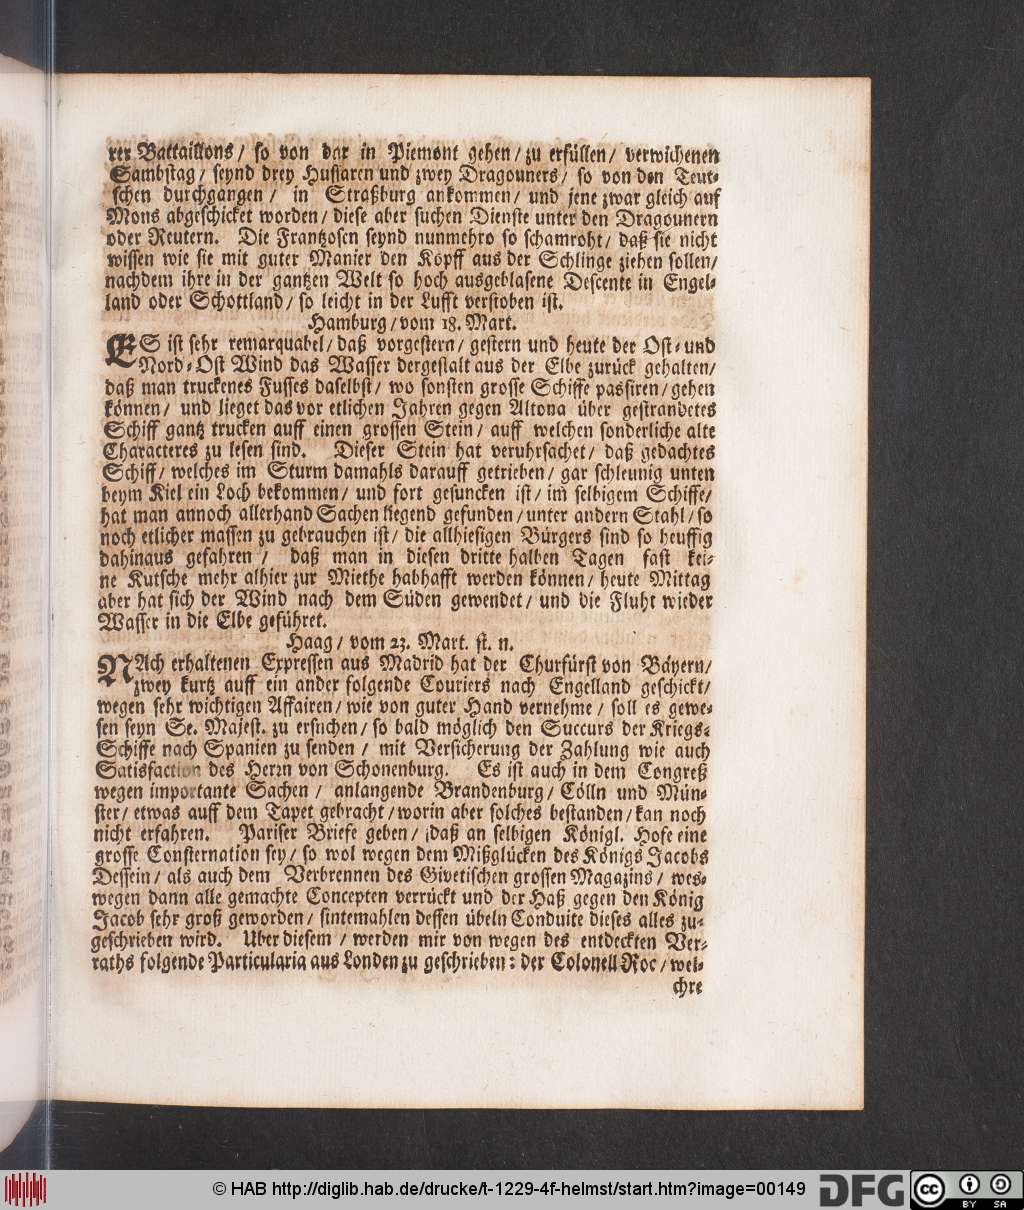 rer Battaillons / so von dar in Piemont gehen / zu erfüllen / verwichenen
Sambstag / seynd drey Hussaren und zwey Dragouners / so von den Teut-
schen durchgangen / in Straßburg ankommen / und jene zwar gleich auf
Mons abgeschicket worden / diese aber suchen Dienste unter den Dragounern
oder Reutern. Die Frantzosen seynd nunmehro so schamroht / daß sie nicht
wissen wie sie mit guter Manier den Kopff aus der Schlinge ziehen sollen /
nachdem ihre in der gantzen Welt so hoch ausgeblasene Descente in Engel-
land oder Schottland / so leicht in der Lufft verstoben ist.
Hamburg / vom 18. Mart.
ES ist sehr remarquabel / daß vorgestern / gestern und heute der Ost- und
Nord-Ost Wind das Wasser dergestalt aus der Elbe zurück gehalten /
daß man truckenes Fusses daselbst / wo sonsten grosse Schiffe passiren / gehen
können / und lieget das vor etlichen Jahren gegen Altona über gestrandetes
Schiff gantz trucken auff einen grossen Stein / auff welchen sonderliche alte
Characteres zu lesen sind. Dieser Stein hat veruhrsachet / daß gedachtes
Schiff / welches im Sturm damahls darauff getrieben / gar schleunig unten
beym Kiel ein Loch bekommen / und fort gesuncken ist / im selbigem Schiffe /
hat man annoch allerhand Sachen liegend gefunden / unter andern Stahl / so
noch etlicher massen zu gebrauchen ist / die allhiesigen Bürgers sind so heuffig
dahinaus gefahren / daß man in diesen dritte halben Tagen fast kei-
ne Kutsche mehr alhier zur Miethe habhafft werden können / heute Mittag
aber hat sich der Wind nach dem Süden gewendet / und die Fluht wieder
Wasser in die Elbe geführet.
Haag / vom 23. Mart. st. n.
NAch erhaltenen Expressen aus Madrid hat der Churfürst von Bäyern /
zwey kurtz auff ein ander folgende Couriers nach Engelland geschickt /
wegen sehr wichtigen Affairen / wie von guter Hand vernehme / soll es gewe-
sen seyn Se. Majest. zu ersuchen / so bald möglich den Succurs der Kriegs-
Schiffe nach Spanien zu senden / mit Versicherung der Zahlung wie auch
Satisfaction des Herrn von Schonenburg. Es ist auch in dem Congreß
wegen importante Sachen / anlangende Brandenburg / Cölln und Mün-
ster / etwas auff dem Tapet gebracht / worin aber solches bestanden / kan noch
nicht erfahren. Pariser Briefe geben / daß an selbigen Königl. Hofe eine
grosse Consternation sey / so wol wegen dem Mißglücken des Königs Jacobs
Dessein / als auch dem Verbrennen des Givetischen grossen Magazins / wes-
wegen dann alle gemachte Concepten verrückt und der Haß gegen den König
Jacob sehr groß geworden / sintemahlen dessen übeln Conduite dieses alles zu-
geschrieben wird. Uber diesem / werden mir von wegen des entdeckten Ver-
raths folgende Particularia aus Londen zu geschrieben: der Colonell Roc / wel-
chre
© HAB http://diglib.hab.de/drucke/t-1229-4f-helmst/start.htm?image=00149
DFG
cc BY SA